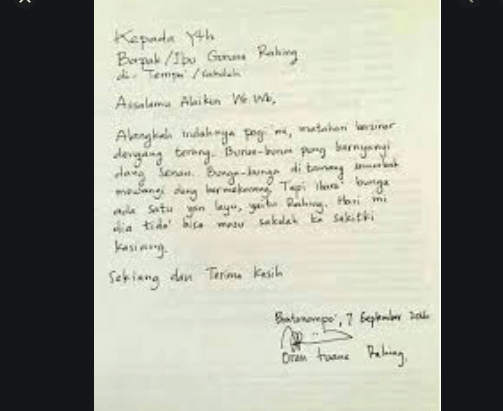 Kepada Yth
Barpak/Ibu Gurunna Rahing
di- Tempa'/sakolah
Assalamu Alaikon Wr Wb,
Alangkah indahnya pagi ini, matahari bersinar
dengang terang. Burung-burung pung bernyanyi
dang senan. Bunga-bunga di tamang semerbak
mewangi dang bermekarang. Tapi ibara' bunga
ada satu yan layu, yaitu Rahing. Hari ini
dia tida' bisa masu sakolah ka sakitki
kasiang.
Sekiang dan Terima kasih
Bontonompo', 7 September
Oran tuana Rahing,